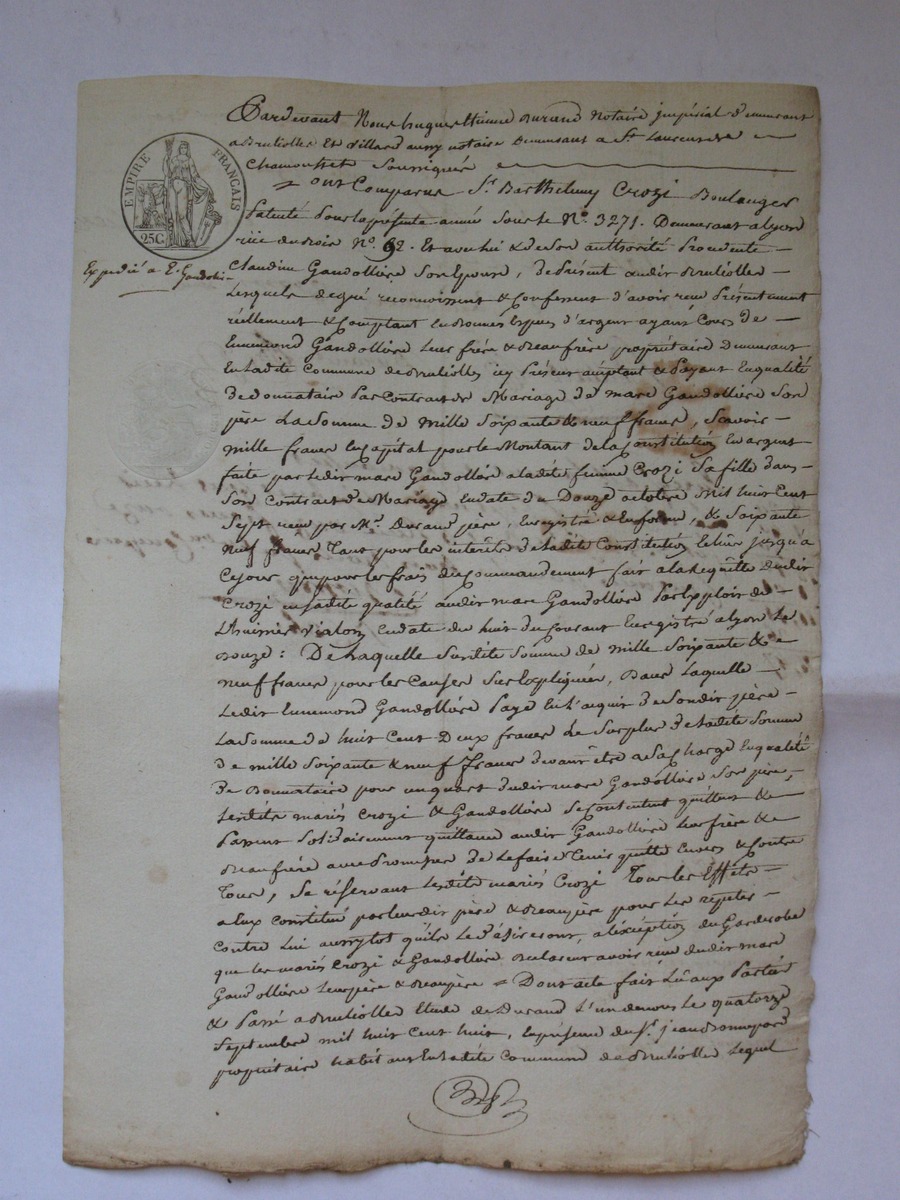 Pardevant Nous hugues Etienne Durand Notaire impérial Demeurant
a Brulliolles Et Villard aussy notaire Demeurant a St. Laurent de
Chamousset Soussignés
= ont Comparus Sr. Barthelemy Crozi Boulanger
Patenté Pour la présente année Sous le No. 3271. Demeurant a lyon
rüe du bois No. 92. Et avec lui & de son authorité Procédente
Claudine Gandollière Son Epouse, de Présent audit Brulliolles
Lesquels de gré reconnoissent & Confessent d'avoir reçu Présentement
réellement & Comptant en bonnes Espèces d'argent ayant Cours de
Ennemond Gandollière leur frère & Beaufrère propriétaire Demeurant
En Ladite Commune de Brulliolles icy Présent acceptant & Payant En qualité
de donnataire Par Contract de Mariage de marc Gandollière Son
père La Somme de mille Soixante & neuf francs, Scavoir
mille francs en Capital pour le Montant de la Constitution En argent
faite par ledit marc Gandollière a ladite femme Crozi Sa fille dans
Son Contract de Mariage en date du Douze octobre Mil huit Cent
Sept reçu par Me. Durand père, Enregistré & En forme, & Soixante
neuf francs Tant pour les interêts de Ladite Constitution Echus jusqu'a
Ce jour que pour les frais du Commandement fait a la Requête dudit
Crozi en sadite qualité audit marc Gandollière Par Exploit de
L'huissier Vialon en date du huit du Courant Enregistré a lyon Le
Douze: De Laquelle Susdite Somme de mille Soixante &
neuf francs pour les Causes Sus Expliquées, Dans Laquelle
Ledit Ennemond Gandollière Paye En l'acquit de Son dit père
La Somme de huit Cent Deux francs Le Surplus de Ladite Somme
de mille Soixante & neuf francs devant être a Sa Charge En qualité
de Donnataire pour un quart dudit marc Gandollière Son père,
Lesdits mariés Crozi & Gandollière Se Contentent quittent &
Passent Solidairement quittance audit Gandollière leur frère &
Beaufrère avec Promesse de Le faire Tenir quitte Envers & Contre
Tous, Se réservant Lesdits mariés Crozi Tous les Effets
a Eux Constitués par leurdit père & Beaupère pour les répéter
Contre Lui aussytot qu'ils Le Désireront, a l'exception du Garderobe
que les mariés Crozi & Gandollière Déclarent avoir reçu dudit marc
Gandollière Leur père & Beaupère = Dont acte fait Lû aux Parties
& Passé a Brulliolles Etude de Durand L'un de nous Le quatorze
Septembre mil huit Cent huit, En présence du Sr. jean
propriétaire habitant En Ladite Commune de Brulliolles Lequel
EMPIRE FRANÇAIS
25C
Expédié a E. Gandolli